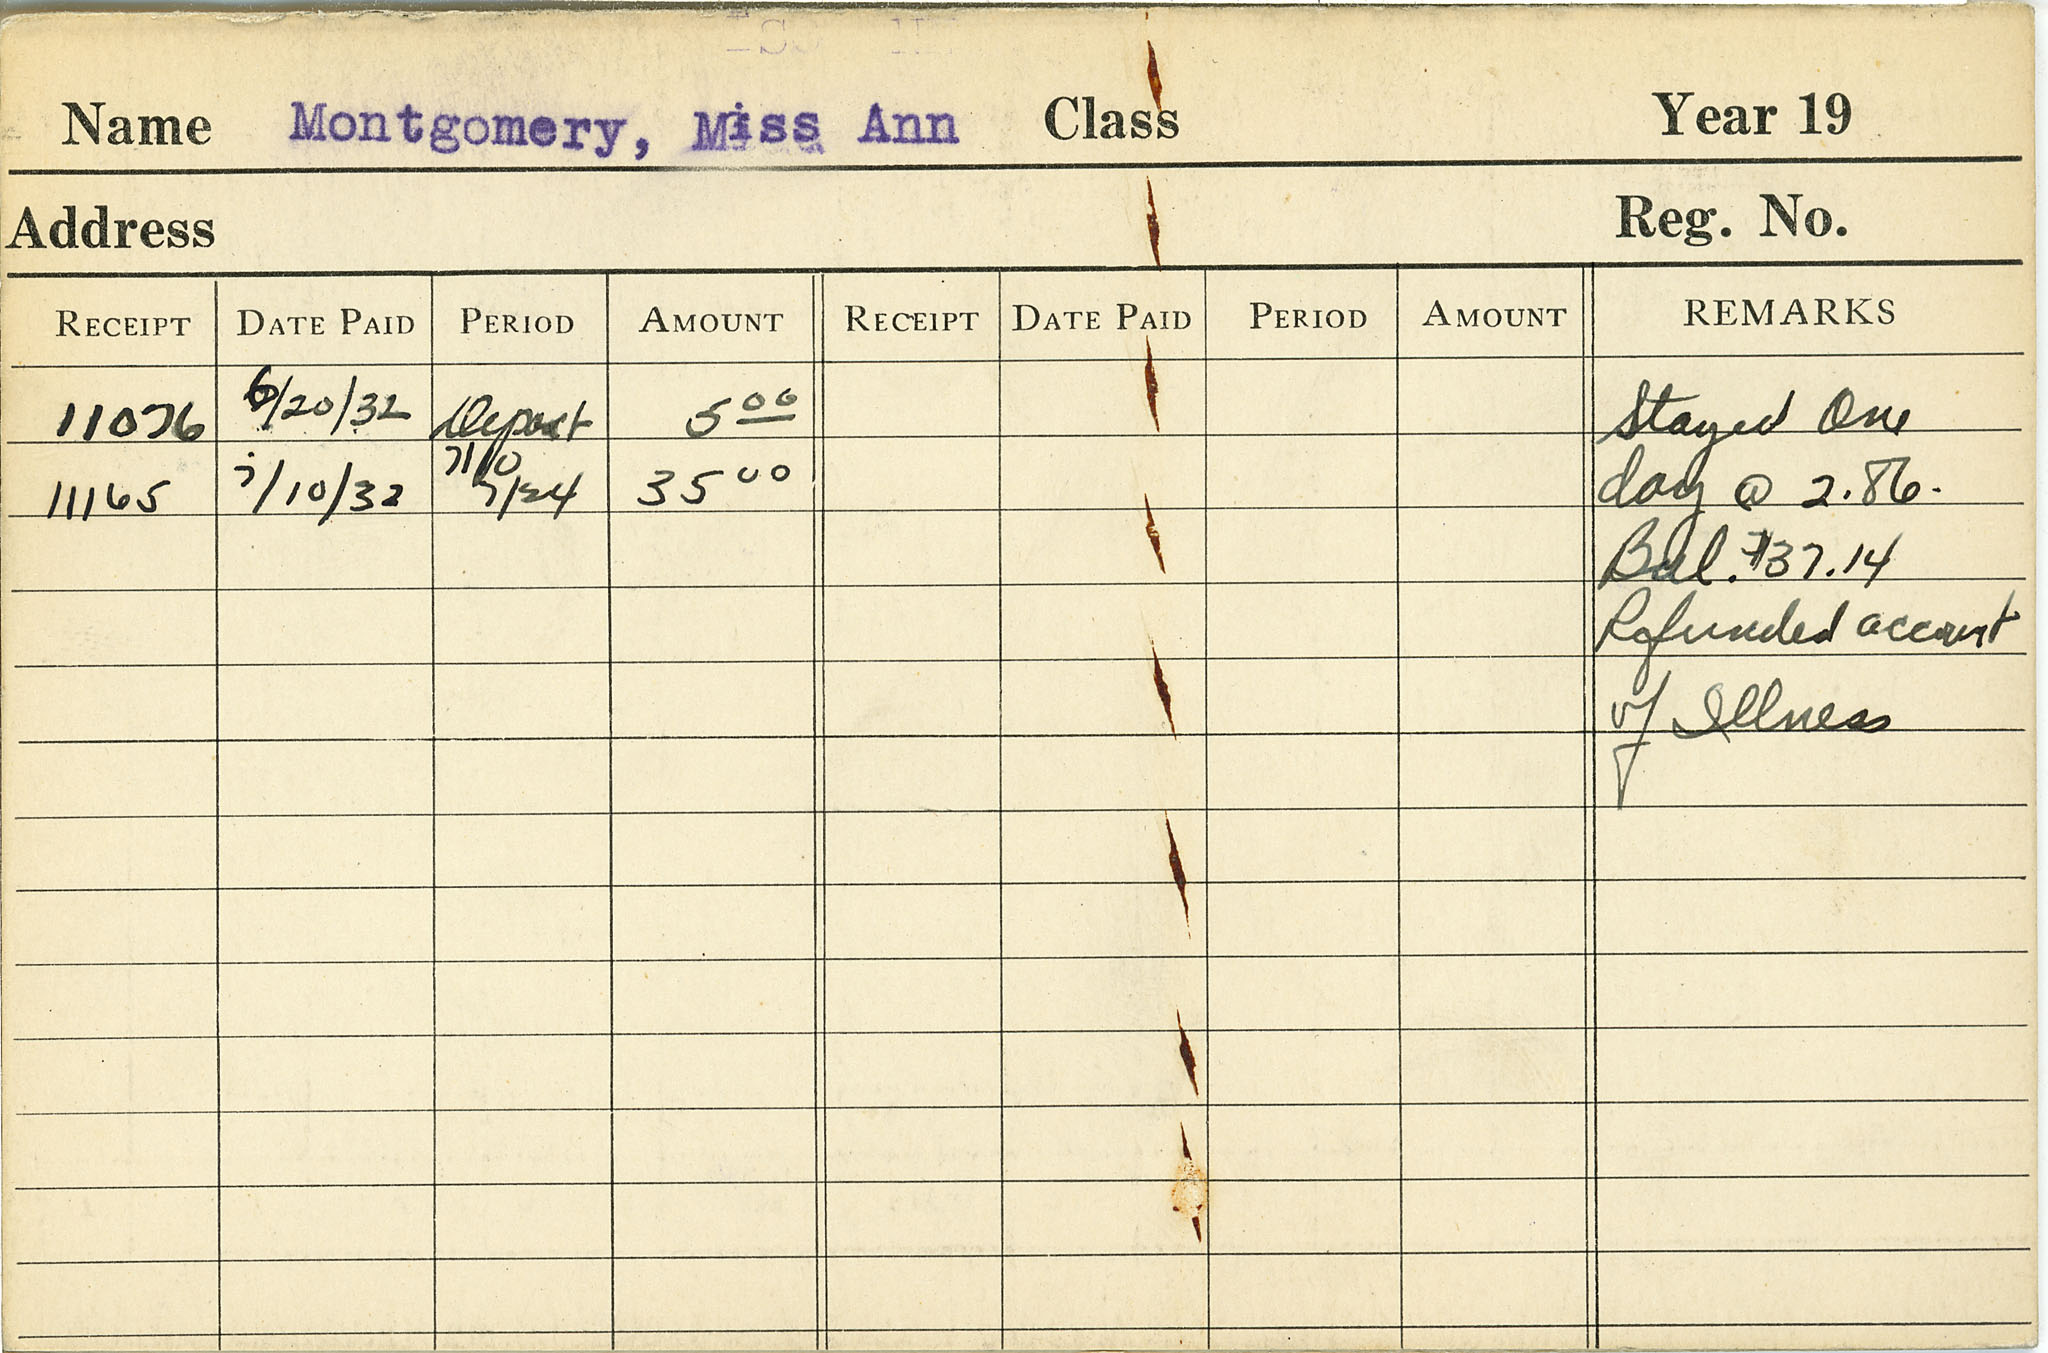 Name Montgomery, Miss Ann Class Year 19
Address Reg. No.
RECEIPT DATE PAID PERIOD AMOUNT RECEIPT DATE PAID PERIOD AMOUNT REMARKS
11076 6/20/32 Deposit 5 00 Stayed One
11165 7/10/32 7/10 7/24 35 00 day @ 2.86.
Bal. $37.14
Refunded account
of Illness